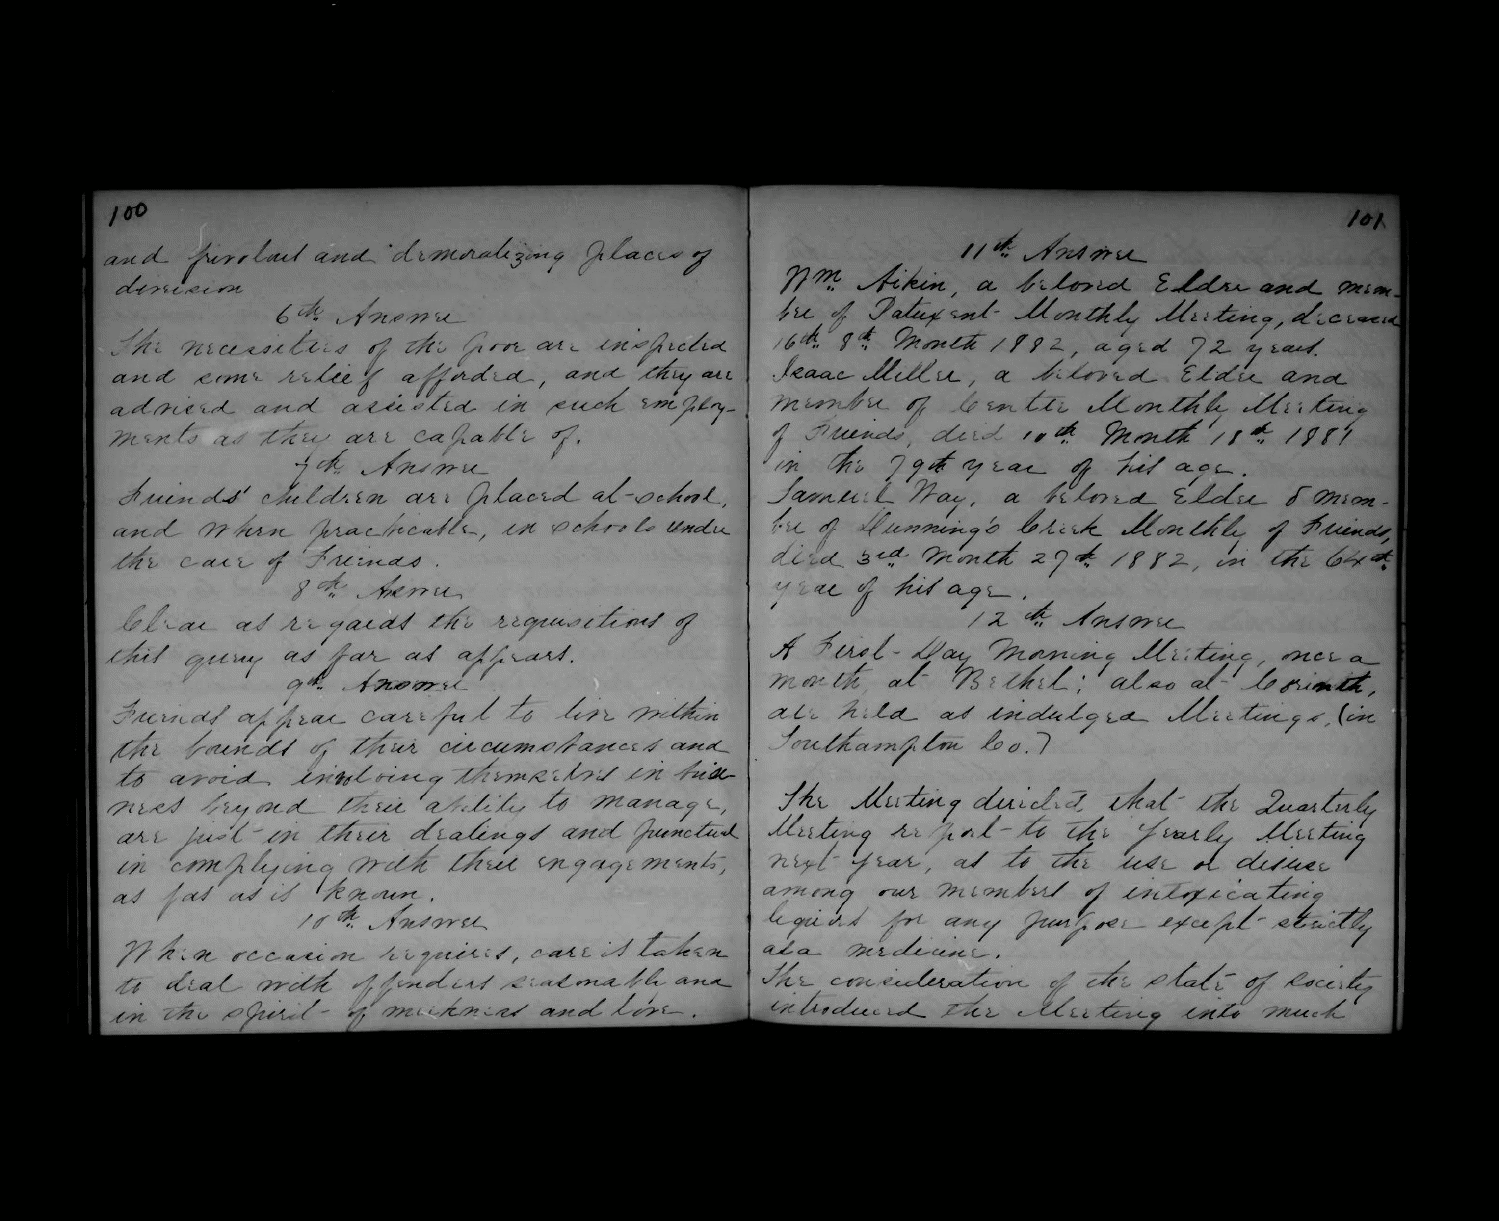 100
and frivolous and demoralizing places of
diversion
6th Answer
The necessities of the poor are inspected
and some relief afforded, and they are
advised and assisted in such employ-
ments as they are capable of.
7th Answer
Friends' children are placed at school,
and when practicable, in schools under
the care of Friends.
8th Answer
Clear as regards the requisitions of
this query as far as appears.
9th Answer
Friends appear careful to live within
the bounds of their circumstances and
to avoid involving themselves in busi-
ness beyond their ability to manage,
are just in their dealings and punctual
in complying with their engagements,
as far as is known.
10th Answer
When occasion requires, care is taken
to deal with offenders seasonable and
in the spirit of meekness and love.
101
11th Answer
Wm. Aikin, a beloved Elder and mem-
ber of Patuxent Monthly Meeting, deceased
16th 8th Month 1882, aged 72 years.
Isaac Miller, a beloved Elder and
member of Centre Monthly Meeting
of Friends, died 10th Month 18th 1881
in the 79th year of his age.
Samuel Way, a beloved Elder & mem-
ber of Dunning's Creek Monthly of Friends,
died 3rd Month 27th 1882, in the 64th
year of his age.
12th Answer
A First-Day Morning Meeting, once a
month, at Bethel; also at Corinth,
are held as indulged Meetings, (in
Southampton Co.)
The Meeting directed that the Quarterly
Meeting report to the Yearly Meeting
next year, as to the use or disuse
among our members of intoxicating
liquors for any purpose except strictly
as a medicine.
The consideration of the state of society
introduced the Meeting into much